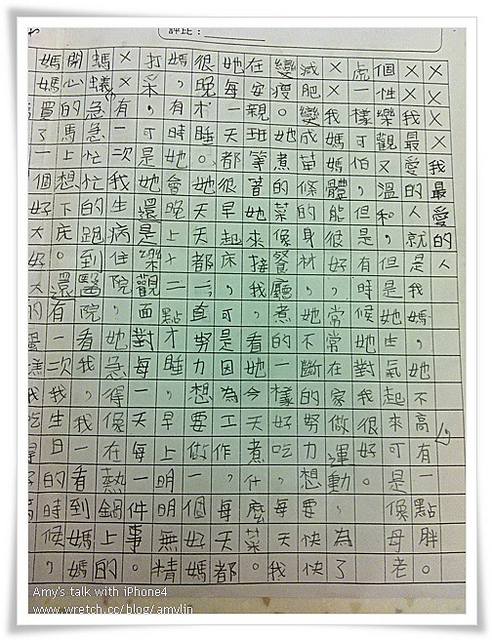 評比：
××××我最愛的人
××我最愛的人就是我媽媽，她不高有一點胖。
個性樂觀又溫和，但是她生氣起來可是像母老
虎一樣可怕，但是有時候她對我很好。
××我媽媽體能很好，常常在家做運動，為了
減肥變成苗條的身材，她不斷的努力想要快快
變瘦。她煮的菜像餐廳煮的一樣好吃，每天我
在安親班等著她來接我，看她今天煮什麼菜。
她每一天都很早起床，可是因為工作，每天都
很晚才睡。她天天都一直努力想要做一個好媽
媽，有時她會晚上十二點才睡，早上明明無精
打采，可是她還是樂觀面對每一天每一件事。
××有一次我生病住院，她急得像在熱鍋上的
螞蟻急急忙忙的跑到醫院看我，我一看到媽媽
開心的馬上想下床。還有一次我生日的時候，
媽媽買了一個好大好大的蛋糕我吃
Amy's talk with iPhone4
www.wretch.cc/blog/amylin